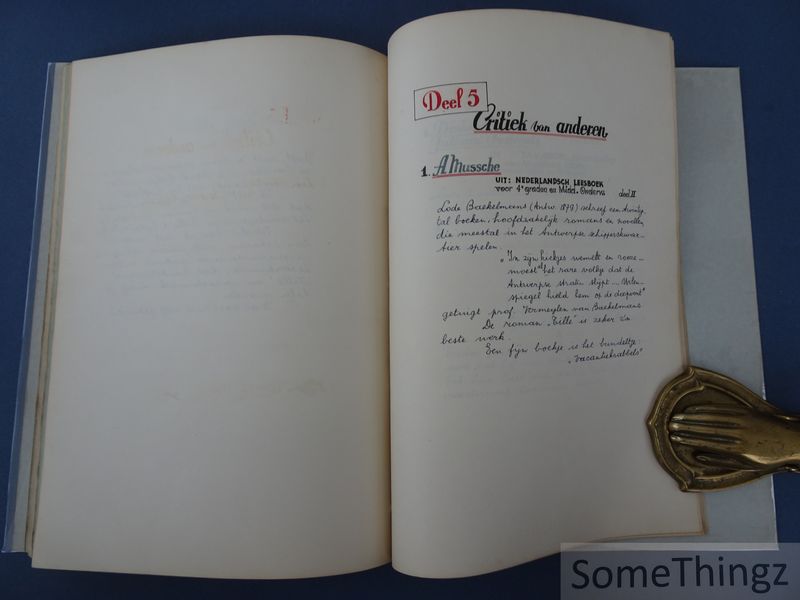 Deel 5
Critiek van anderen
1. A Mussche
UIT: NEDERLANDSCH LEESBOEK
voor 4e graden en Midd. Onderw. deel II
Lode Baekelmans (Antw. 1879) schreef een twintig-
tal boeken, hoofdzakelijk romans en novellen,
die meestal in het Antwerpse schipperskwar-
tier spelen.
„In zijn boekjes wemelt en roeze-
moest het rare volkje dat de
Antwerpse straten slijpt ... Uilen-
spiegel hield hem op de doopvont"
getuigt prof. Vermeylen van Baekelmans
De roman „Tille" is zeker zijn
beste werk.
Een fijn boekje is het bundeltje:
„Vacantiekrabbels"
SomeThingz